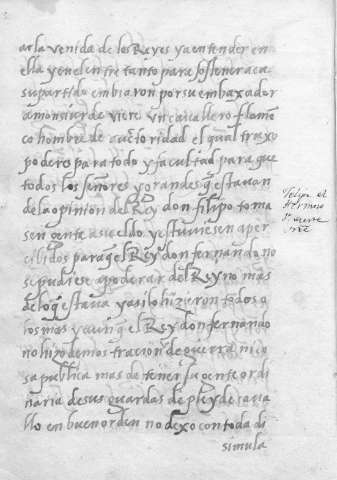 ar la venida de los Reyes ya entender en
ella y en el entre tanto para sostener aca
su partido embiaron por su embaxador
a monsiur de viere un cavallero flame
co hombre de auctoridad el qual traxo
poderes para todo y facultad para que
todos los señores y grandes q̃ estavan
de la opinion del Rey don filipo toma
sen gente a sueldo y estuviesen aper
cibidos para q̃ el Rey don fernando no
se pudiese apoderar del Reyno mas
de lo q̃ estava y asi lo hizieron todos o
los mas y aun q̃ el Rey don fernando
no hizo demostracion de guerra ni co
sa publica mas de tener su gente ordi
naria de sus guardas de pie y de cava
llo en buen orden no dexo con toda di
simula
felipe el